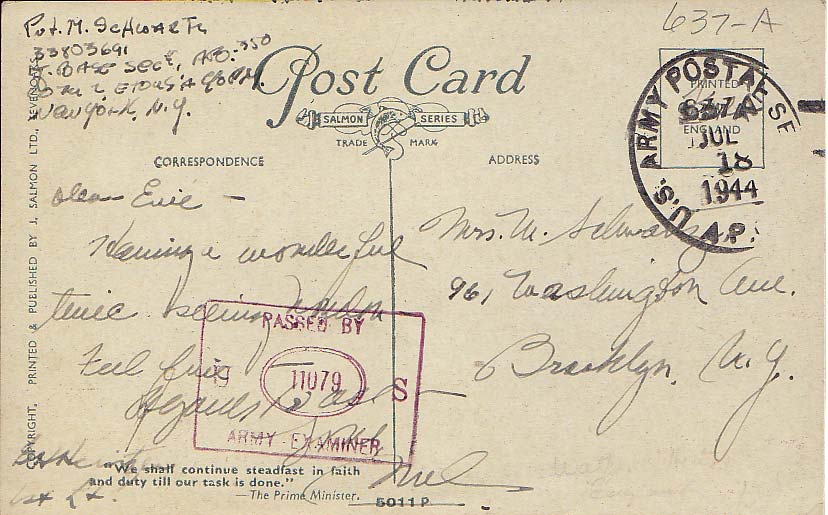 Pvt. M. Schwartz
33803691
BASE Sect, APO-350
New York, N.Y.
637-A
Post Card
SALMON SERIES
TRADE MARK
CORRESPONDENCE
ADDRESS
PRINTED
ENGLAND
U.S. ARMY POSTAL SE
A.P.
637A
JUL
18
1944
COPYRIGHT. PRINTED & PUBLISHED BY J. SALMON LTD., SEVENOAKS
Dear Evie —
Having a wonderful
time seeing London
Feel fine
Regards to all
Mel
Mrs. M. Schwartz
961 Washington Ave.
Brooklyn, N.Y.
PASSED BY
11079
S
ARMY EXAMINER
1st Lt.
"We shall continue steadfast in faith
and duty till our task is done."
—The Prime Minister.
5011P